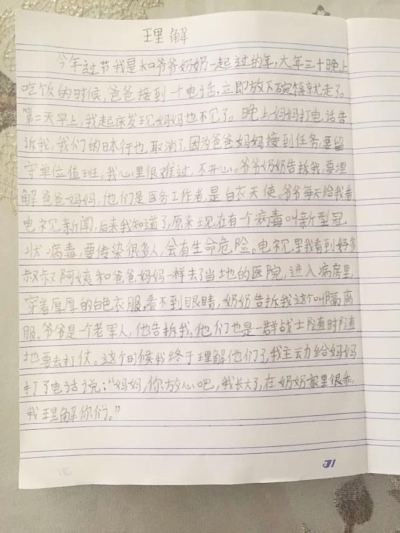 理解
今年过节我是和爷爷奶奶一起过的年,大年三十晚上
吃饭的时候,爸爸接到一个电话,立即放下碗筷就走了。
第二天早上,我起床发现妈妈也不见了。晚上妈妈打电话告
诉我,我们的日本行也取消了,因为爸爸妈妈接到任务,要留
守单位值班,我心里很难过,不开心。爷爷奶奶告诉我,要理
解爸爸妈妈,他们是医务工作者,是白衣天使,爷爷每天给我看
电视新闻,后来我知道了,原来现在有一个病毒叫新型冠
状病毒,要传染很多人,会有生命危险。电视里我看到好多
叔叔阿姨和爸爸妈妈一样去了当地的医院,进入病房里,
穿着厚厚的白色衣服,看不到眼睛,奶奶告诉我这个叫隔离
服。爷爷是个老军人,他告诉我,他们也是一群战士随时随
地要去打仗,这个时候我终于理解他们了,我主动给妈妈
打了电话说:“妈妈,你放心吧,我长大了,在奶奶家里很乖,
我理解你们。”
31